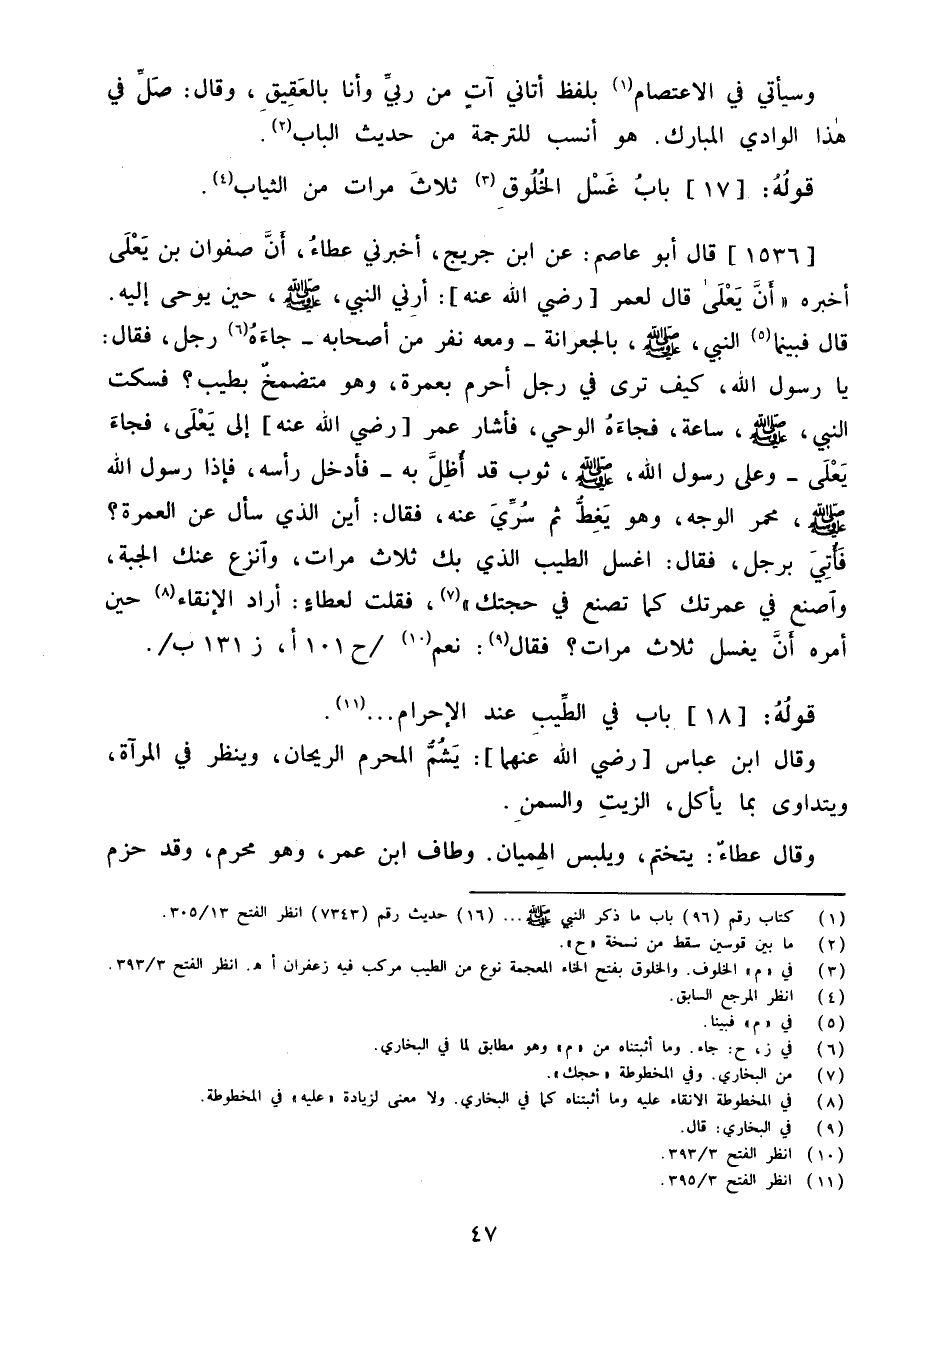 وسيأتي في الاعتصام(١) بلفظ أتاني آتٍ من ربيِّ وأنا بالعَقيقِ، وقال: صَلِّ في
هٰذا الوادي المبارك. هو أنسب للترجمة من حديث الباب(٢).
قولُهُ: [١٧] بابُ غَسْل الخُلُوق(٣) ثلاثَ مرات من الثياب(٤).
[١٥٣٦] قال أبو عاصم: عن ابن جريج، أخبرني عطاءُ، أَنَّ صفوان بن يَعْلَى
أخبره «أَنَّ يَعْلَىٰ قال لعمر [رضي الله عنه]: أرني النبي، ﷺ، حين يوحى إليه.
قال فبينما(٥) النبي، ﷺ، بالجعرانة ـ ومعه نفر من أصحابه ـ جاءَهُ(٦) رجل، فقال:
يا رسول الله، كيف ترى في رجل أحرم بعمرة، وهو متضمخٌ بطيب؟ فسكت
النبي، ﷺ، ساعة، فجاءَهُ الوحي، فأشار عمر [رضي الله عنه] إلى يَعْلَى، فجاءَ
يَعْلَى ـ وعلى رسول الله، ﷺ، ثوب قد أُظِلَّ به ـ فأدخل رأسه، فإذا رسول الله
ﷺ، محمر الوجه، وهو يَغِطُّ ثم سُرِّيَ عنه، فقال: أين الذي سأل عن العمرة؟
فَأُتِيَ برجل، فقال: اغسل الطيب الذي بك ثلاث مرات، وٱنزع عنك الجبة،
وٱصنع في عمرتك كما تصنع في حجتك»(٧)، فقلت لعطاءٍ: أراد الإنقاء(٨) حين
أمره أَنَّ يغسل ثلاث مرات؟ فقال(٩): نعم(١٠) /ح ١٠١ أ، ز ١٣١ ب/.
قولُهُ: [١٨] باب في الطِّيبِ عند الإحرام...(١١).
وقال ابن عباس [رضي الله عنهما]: يَشُمُّ المحرم الريحان، وينظر في المرآة،
ويتداوى بما يأكل، الزيتِ والسمنِ.
وقال عطاءٌ: يتختم، ويلبس الهِميان. وطاف ابن عمر، وهو محرم، وقد حزم
(١) كتاب رقم (٩٦) باب ما ذكر النبي ﷺ... (١٦) حديث رقم (٧٣٤٣) انظر الفتح ٣٠٥/١٣.
(٢) ما بين قوسين سقط من نسخة «ح».
(٣) في «م» الخلوف. والخلوق بفتح الخاء المعجمة نوع من الطيب مركب فيه زعفران أ هـ. انظر الفتح ٣٩٣/٣.
(٤) انظر المرجع السابق.
(٥) في «م» فبينا.
(٦) في ز، ح: جاء. وما أثبتناه من «م» وهو مطابق لما في البخاري.
(٧) من البخاري. وفي المخطوطة «حجك».
(٨) في المخطوطة الانقاء عليه وما أثبتناه كما في البخاري. ولا معنى لزيادة «عليه» في المخطوطة.
(٩) في البخاري: قال.
(١٠) انظر الفتح ٣٩٣/٣.
(١١) انظر الفتح ٣٩٥/٣.
٤٧